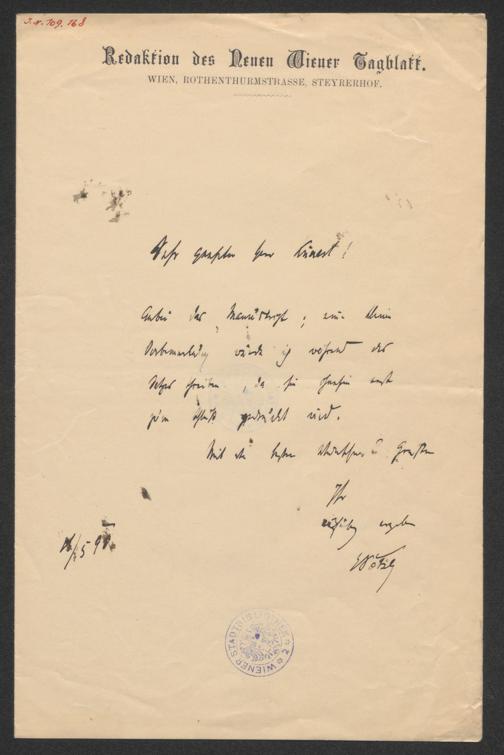 J.N. 109.168
Redaktion des Neuen Wiener Tagblatt.
WIEN, ROTHENTHURMSTRASSE, STEYRERHOF.
Sehr geehrter Herr
Anbei das Manuskript; eine kleine
Vorbemerkung würde ich während des
Satzes schreiben, da sie ohnehin erst
zum Schluß gedruckt wird.
Mit den besten Grüßen
Ihr
ergeben
EPötzl
WIENER STADTBIBLIOTHEK